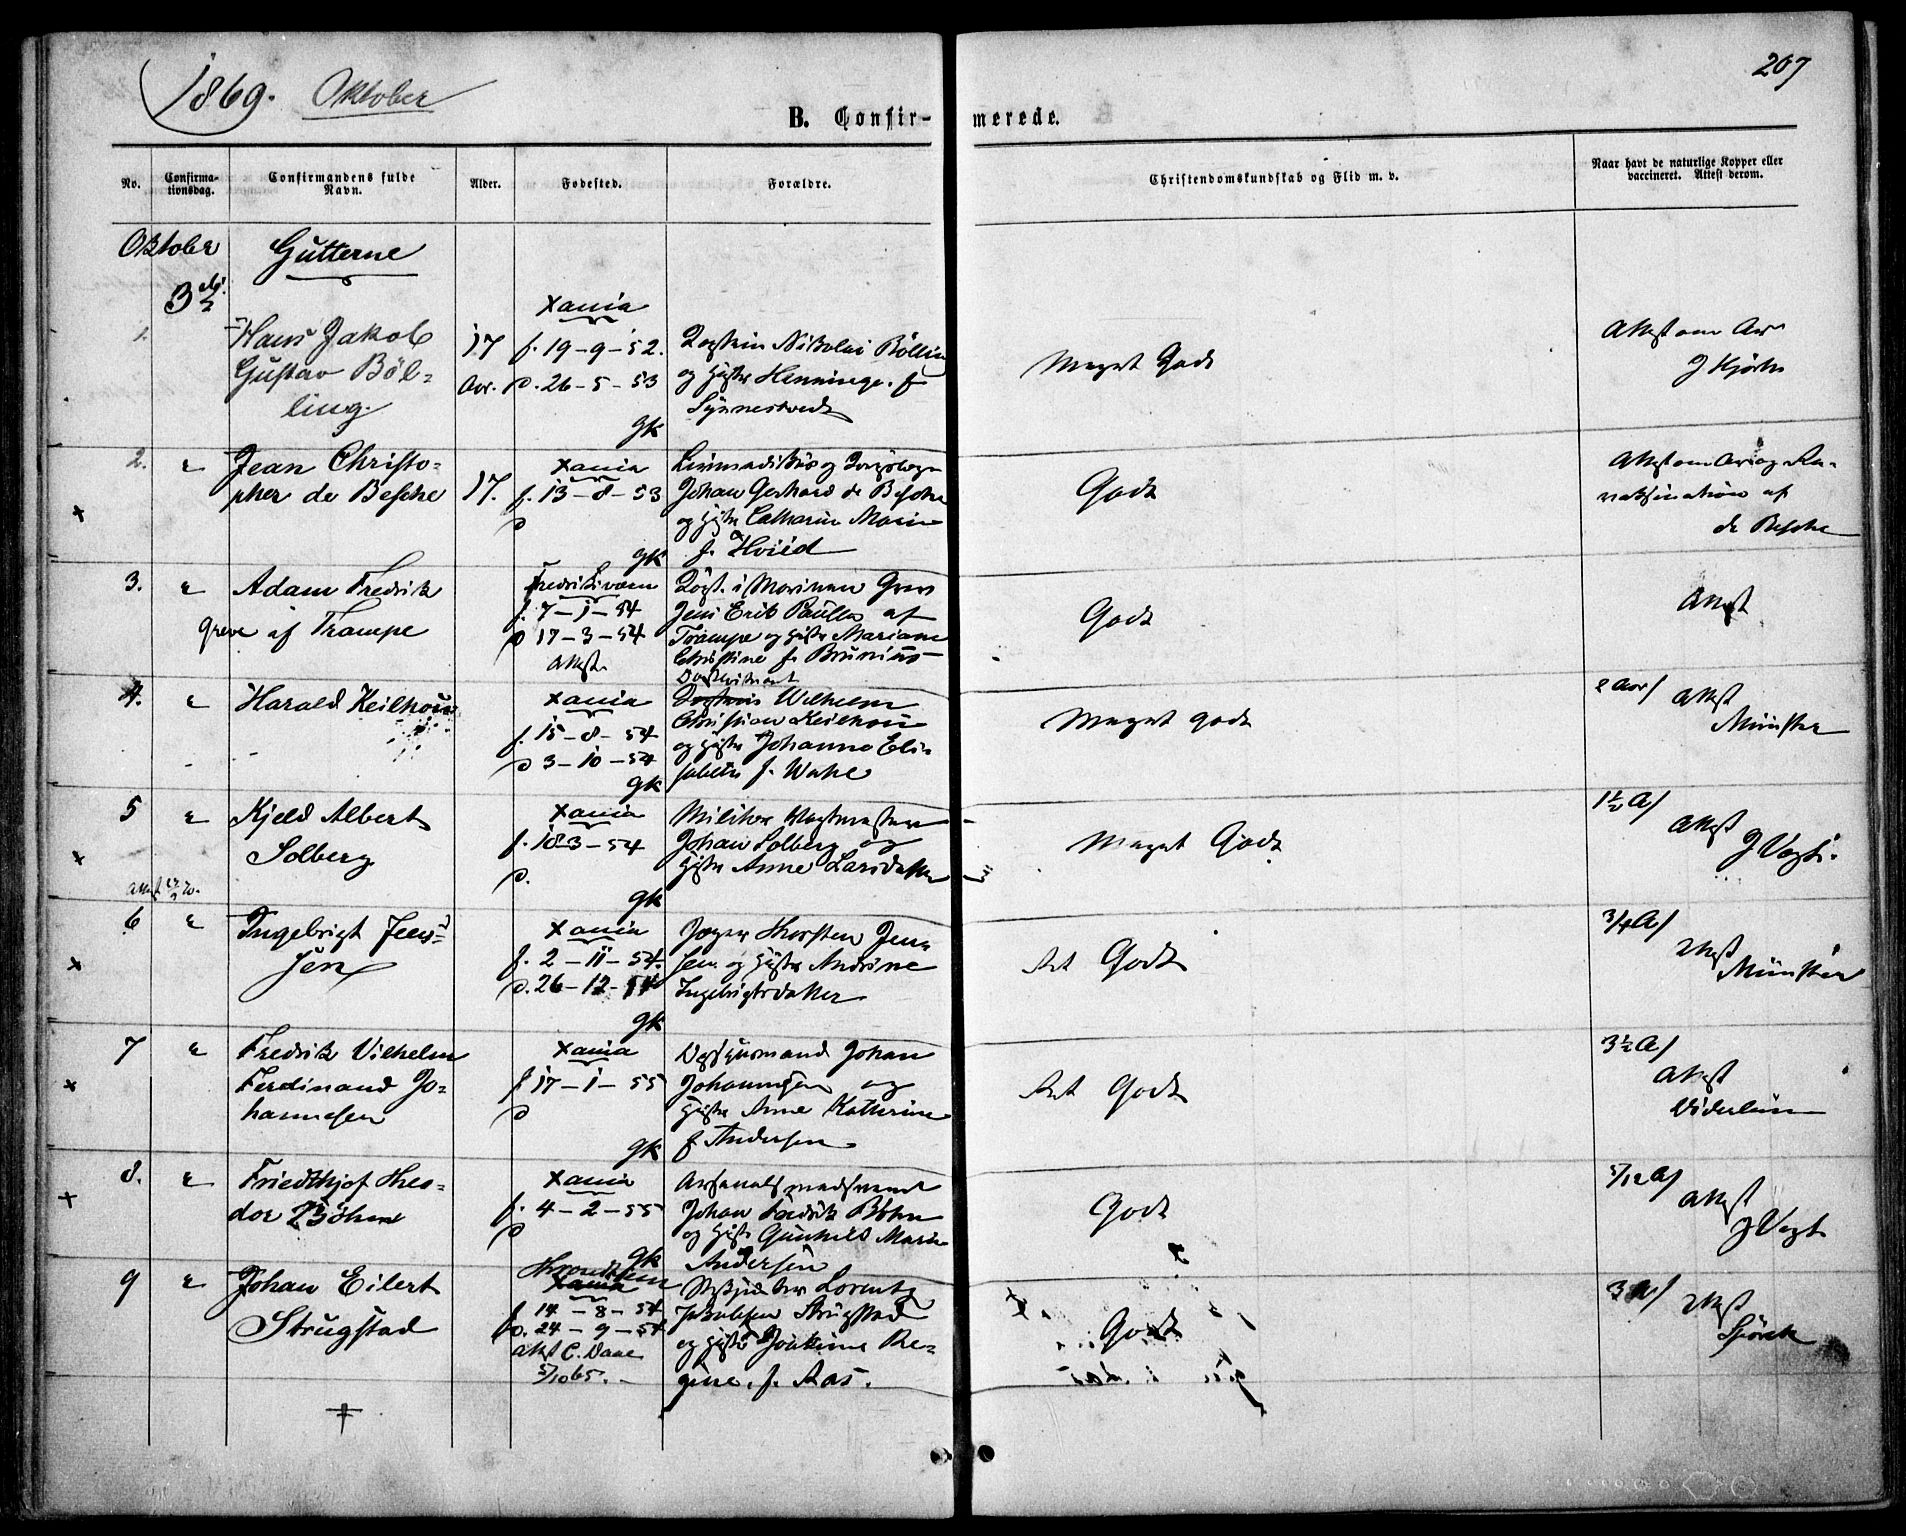 1869. Oktober
207
B. Confir- merede.
No.
Confirma-
tionsdag.
Confirmandens fulde
Navn.
Alder.
Fødested.
Forældre.
Christendomskundskab og Flid m. v.
Naar havt de naturlige Kopper eller
vaccineret. Attest derom.
Oktober
3
Gutterne
1.
Hans Jakob
Gustav Böl-
ling.
17
Aar.
Xania
f. 19-9-52.
D. 26-5-53
gk
Nikolai Bölling
og Hustr Henninge f
Synnestvedt
Meget Godt
Attest om Aar
J Kjørh
2.
Jean Christo-
pher de Besche
17.
Xania
f. 13-8-53
D
gk
Johan Gerhard de Besche
og Hustr Catharin Marie
f. Hviid
Godt
Attest om Aar og Re-
vaksination af
de Besche
3.
Adam Fredrik
Greve af Trampe
Fredriksværn
f. 7-1-54
D 17-3-54
Attest
Kapt. i Marinen Greve
Jens Erik Paulin af
Trampe og Hustr Mariane
Christine f. Brunius
Godt
Attest
4.
Harald Keilhau
Xania
f. 15-8-54
D 3-10-54
gk
Wilhelm
Christian Keilhau
og Hustr Johanne Eli-
sabeth f. Wahl
Meget godt
2 Aar/ Attest
Münster
5
Kjeld Albert
Solberg
Xania
f. 18-3-54
D.
gk
Militær Vagtmester
Johan Solberg og
Hustr Anne Larsdatter
Meget Godt
1½ A/
Attest
J Vogt.
6
Ingebrigt Jen-
sen
Xania
f. 2-11-54.
D. 26-12-54
gk
Thorsten Jen-
sen og Hustr Andrine
Ingebrigtsdatter
Ret Godt
3/4 A/
Attest
Münster
7
Fredrik Vilhelm
Ferdinand Jo-
hannesen
Xania
f 17-1-55
D
gk
Johan
Johannesen og
Hustr Anne Katherine
f Andersen
Ret Godt
3½ A/
Attest
8.
Friedthjof Theo-
dor Böhn
Xania
f. 4-2-55
D
gk
Johan Fredrik Böhn
og Hustr Gunhild Marie
Andersen
Godt
5/12 A/
Attest
J Vogt
9
Johan Eilert
Strugstad
Throndhjem
Xania
f 14-8-54
D. 24-9-54
Att C. Daae
5/10 65.
Lorentz
Jakobsen Strugstad
og Hustr Joakime Re-
gine. f. Aas.
Godt
3 A/
Attest